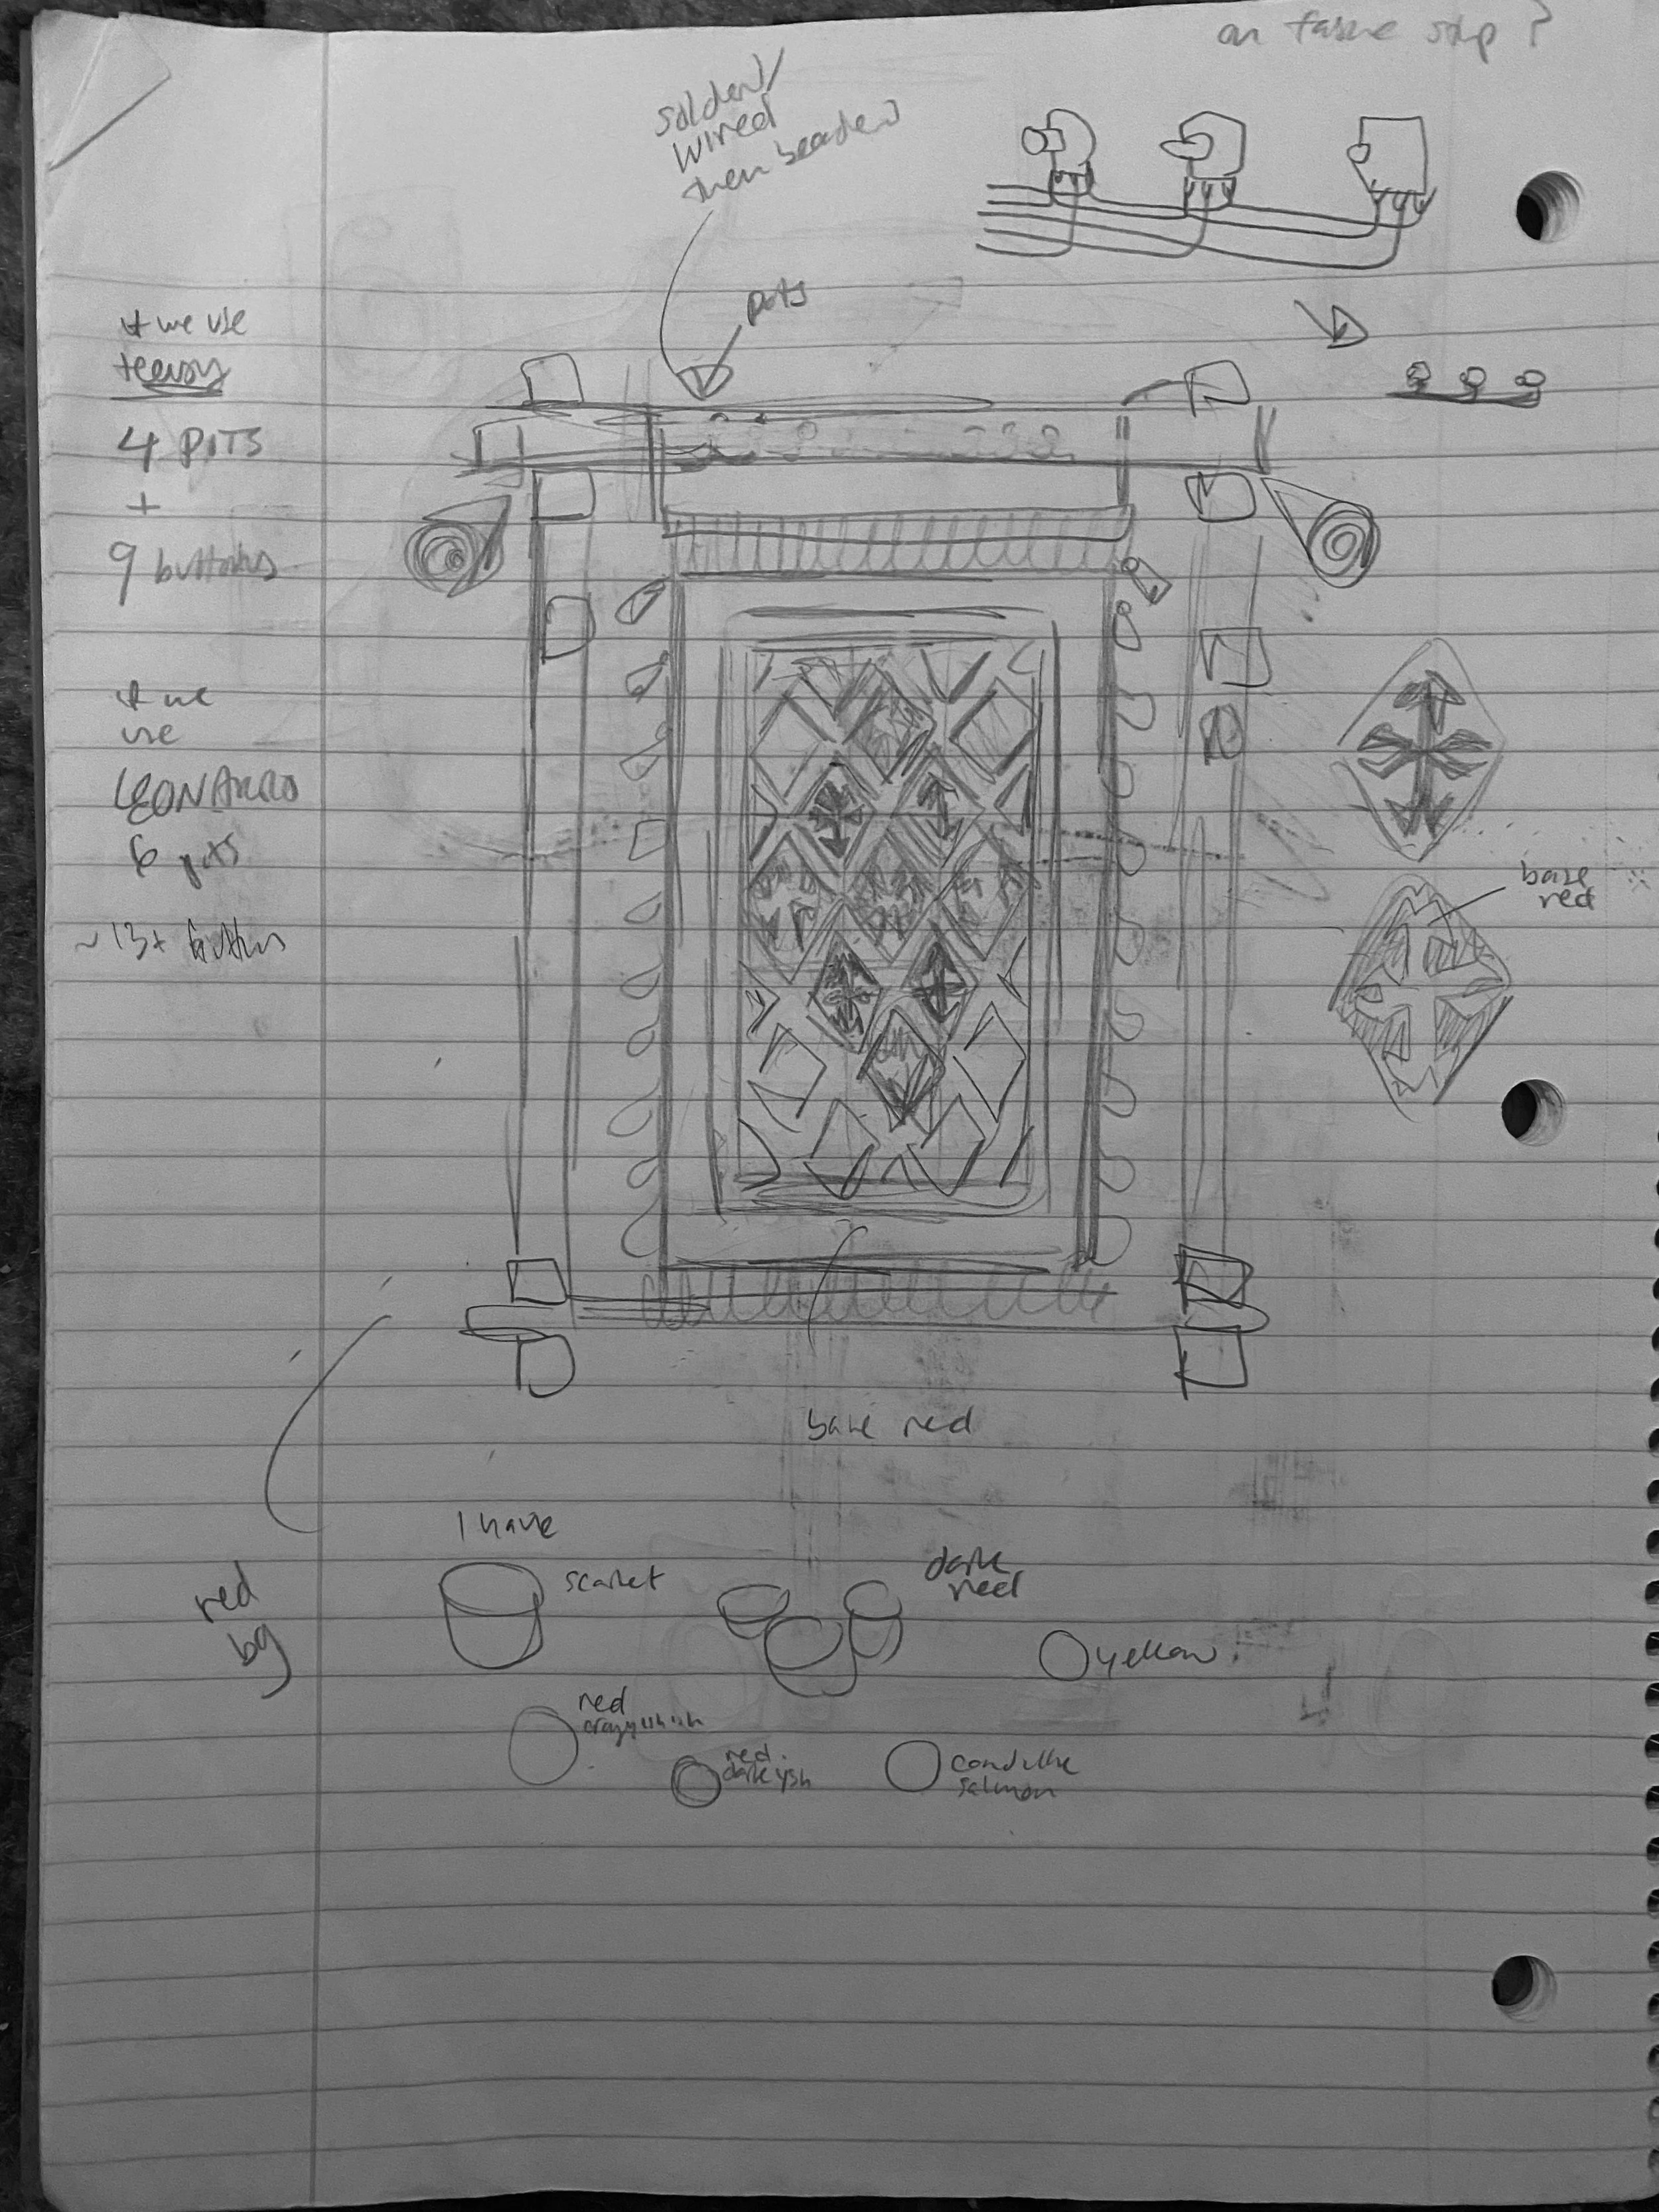 on fabric strip?
solder)/
wired
then beaded)
pots
if we use
teensy
4 POTS
+
9 buttons
if we
use
LEONARDO
6 pots
~ 13+ buttons
base
red
base red
I have
scarlet
dark
red
red
bg
yellow
red
red
darkish
conductive
salmon